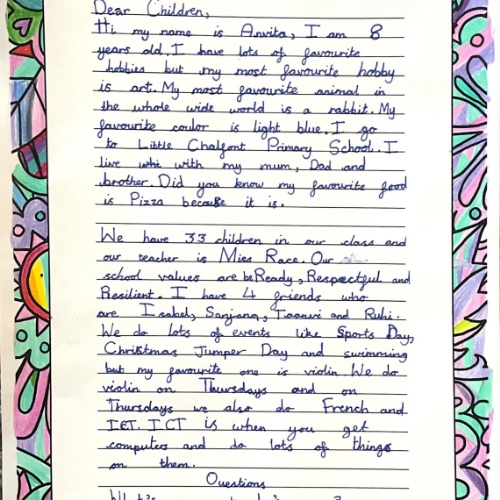 Dear Children,
Hi my name is Anvita, I am 8
years old. I have lots of favourite
hobbies but my most favourite hobby
is art. My most favourite animal in
the whole wide world is a rabbit. My
favourite coulor is light blue. I go
to Little Chalfont Primary School. I
live with my mum, Dad and
brother. Did you know my favourite food
is Pizza because it is.
We have 33 children in our class and
our teacher is Miss Race. Our
school values are beReady, Respectful and
Resilient. I have 4 friends who
are Isabel, Sanjana, and Ruhi.
We do lots of events like Sports Day,
Christmas Jumper Day and swimming
but my favourite one is violin. We do
violin on Thursdays and on
Thursdays we also do French and
ICT. ICT is when you get
computers and do lots of things
on them.
Questions
What's